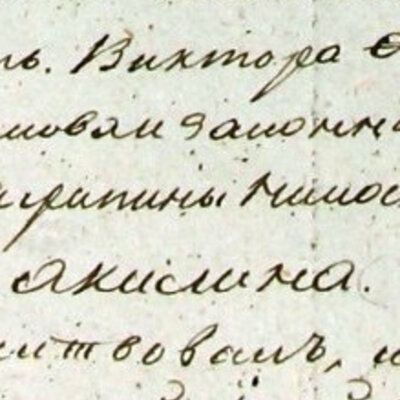 ль. Виктора Ѳ
законн
грипины Тимоѳ
Акилина.
ствовалъ, и